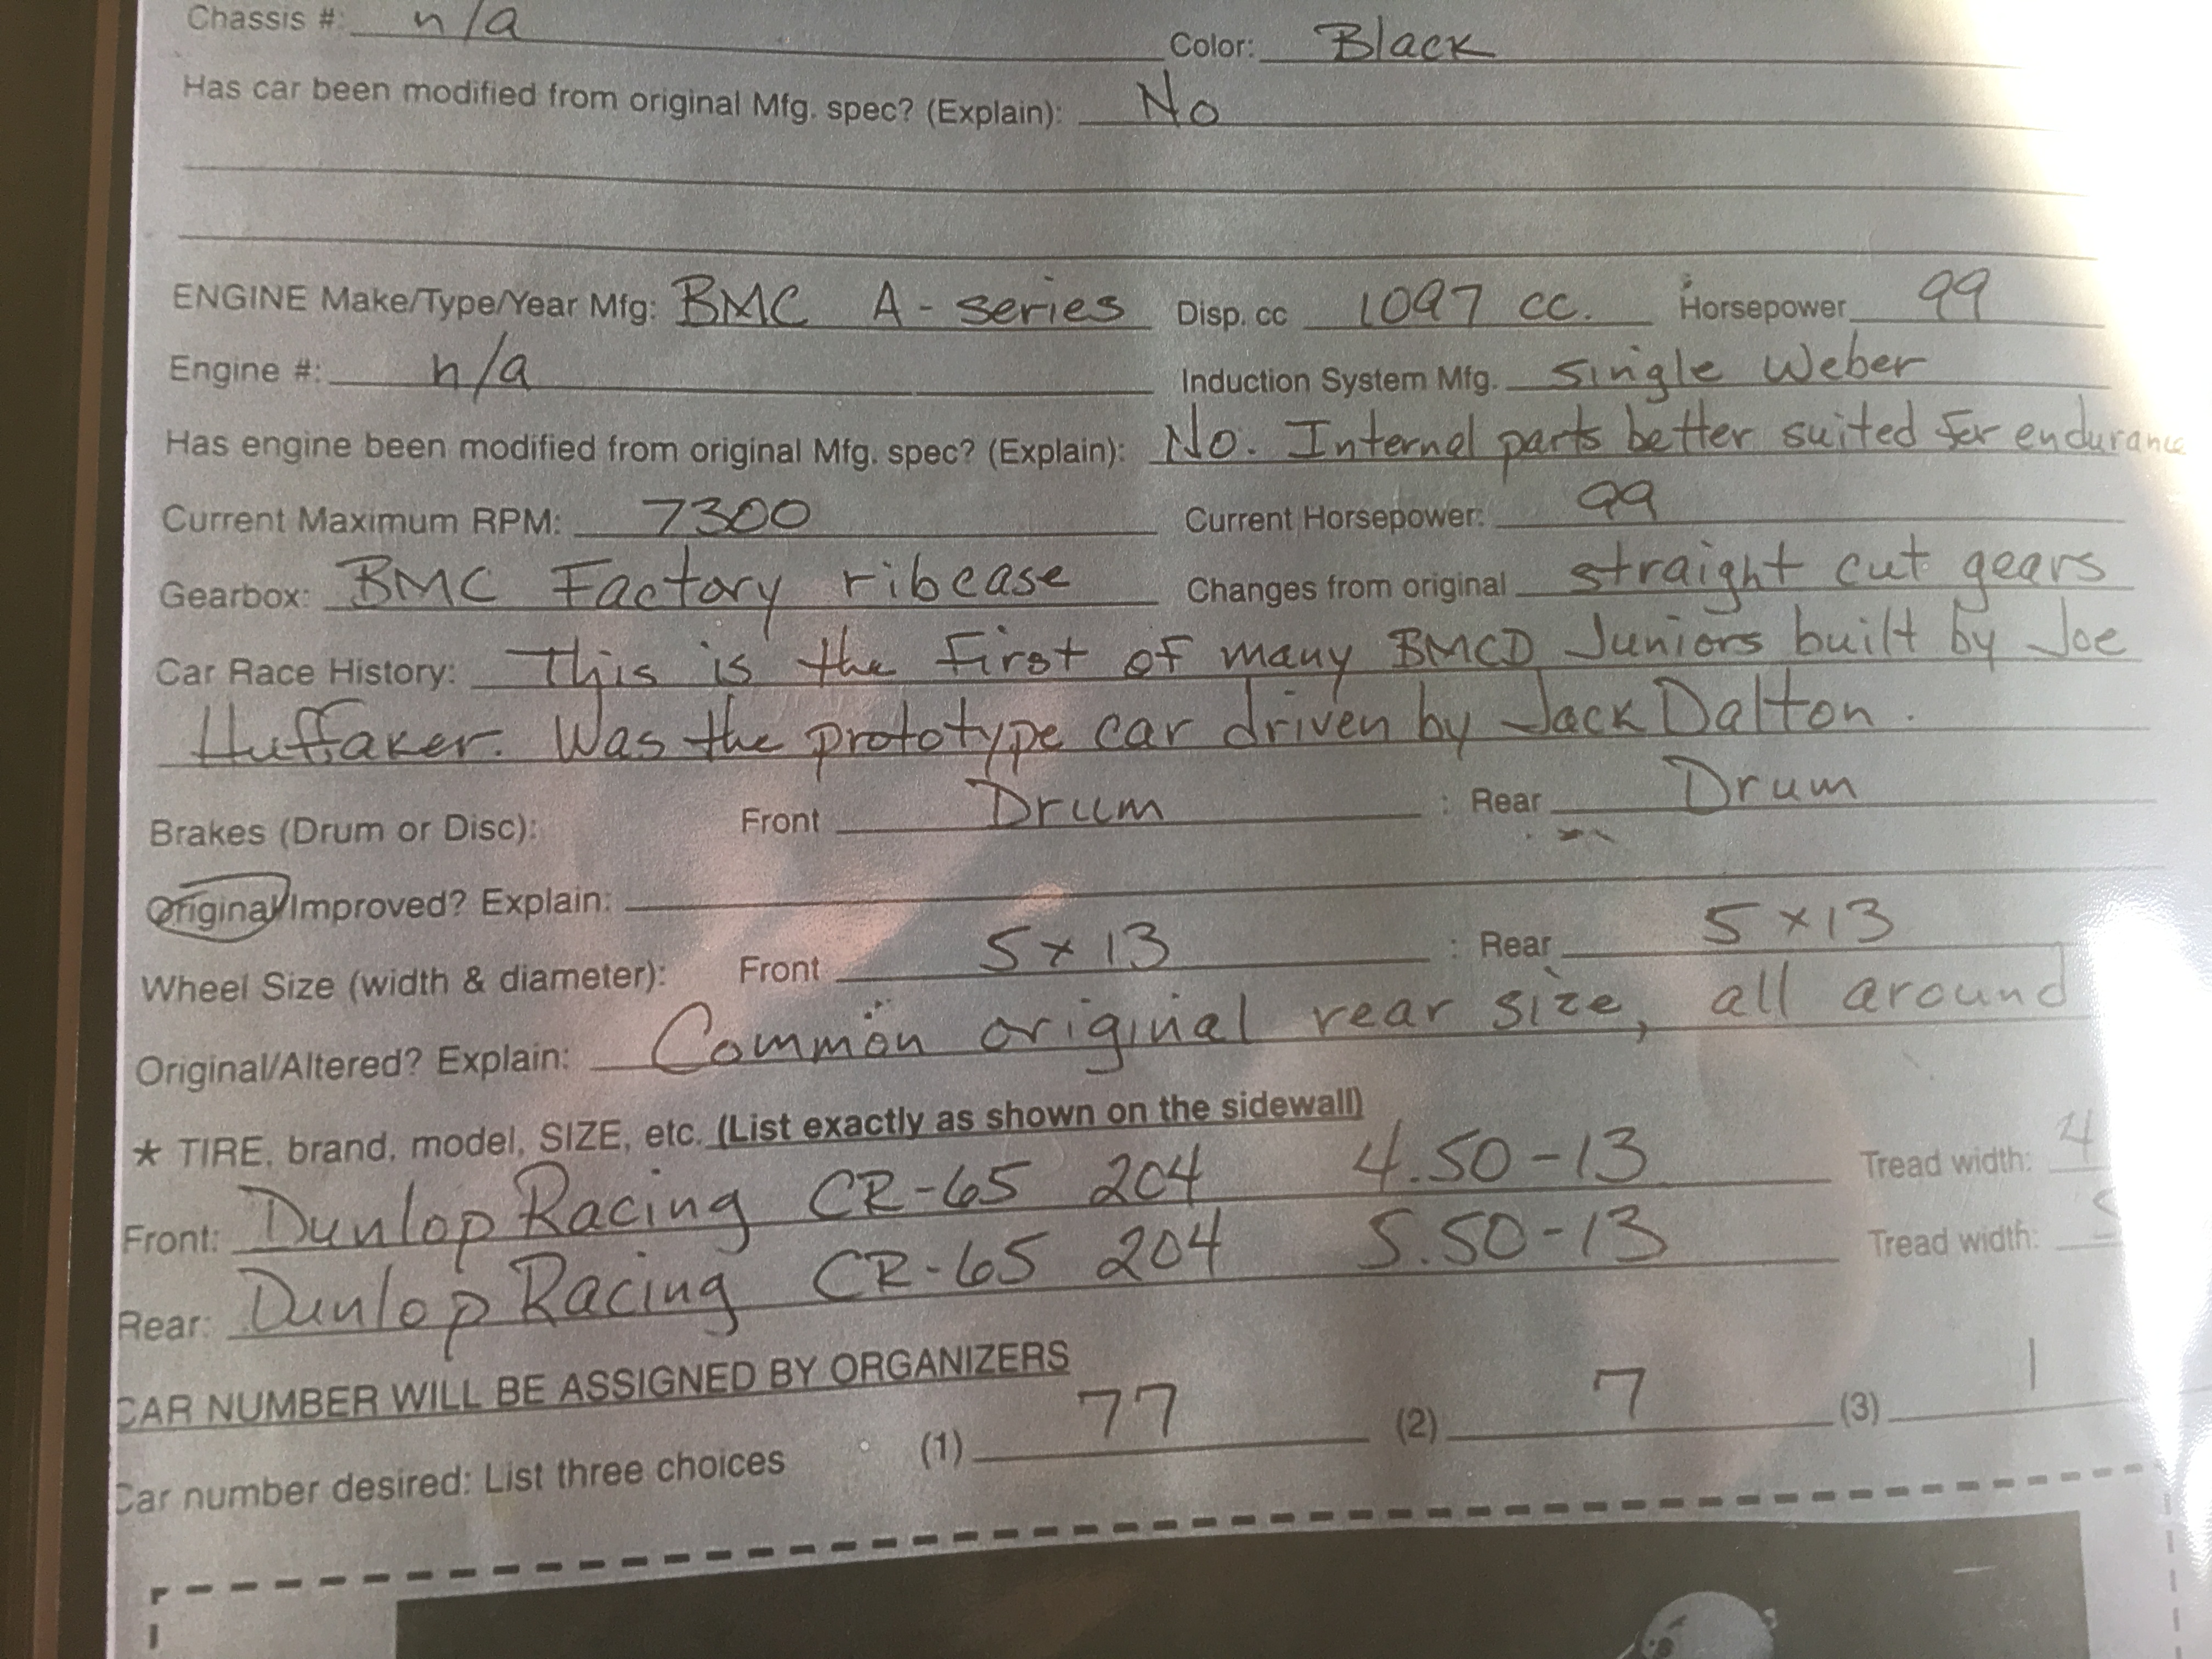 Chassis #: n/a Color: Black
Has car been modified from original Mfg. spec? (Explain): No
ENGINE Make/Type/Year Mfg: BMC A-series Disp. cc 1097 cc. Horsepower 99
Engine #: n/a Induction System Mfg. single Weber
Has engine been modified from original Mfg. spec? (Explain): No. Internal parts better suited for endurance
Current Maximum RPM: 7300 Current Horsepower: 99
Gearbox: BMC Factory ribcase Changes from original straight cut gears
Car Race History: This is the first of many BMCD Juniors built by Joe
Huffaker. Was the prototype car driven by Jack Dalton.
Brakes (Drum or Disc): Front Drum : Rear Drum
Original/Improved? Explain:
Wheel Size (width & diameter): Front 5x13 : Rear 5x13
Original/Altered? Explain: Common original rear size, all around
* TIRE, brand, model, SIZE, etc. (List exactly as shown on the sidewall)
Front: Dunlop Racing CR-65 204 4.50-13 Tread width: 4
Rear: Dunlop Racing CR-65 204 5.50-13 Tread width:
CAR NUMBER WILL BE ASSIGNED BY ORGANIZERS
Car number desired: List three choices (1) 77 (2) 7 (3) 1